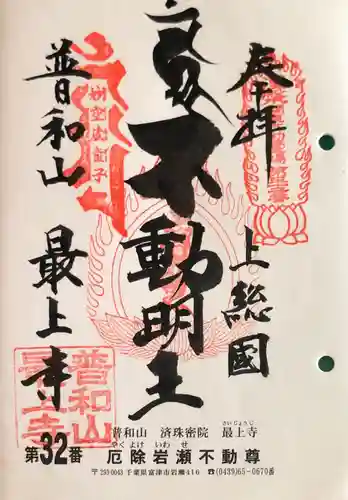 奉拝
上総國
不動明王
普和山
最上寺
普和山
最上寺
第32番
普和山 済珠密院 最上寺
さいじょうじ
やくよけ いわせ
厄除岩瀬不動尊
〒293-0043 千葉県富津市岩瀬416 ☎(0439)65-0670番